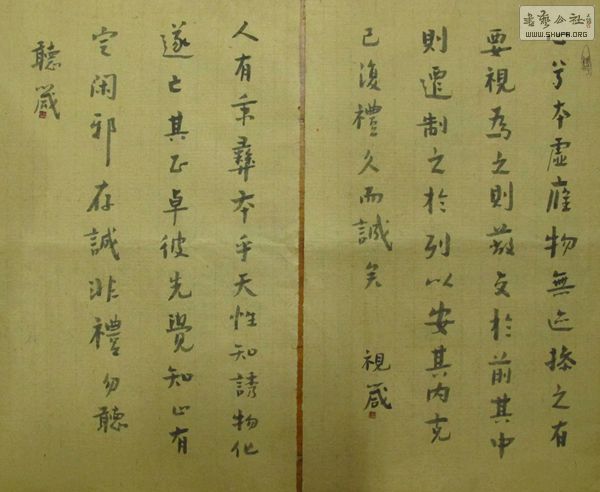 心兮本虛應物無迹操之有
要視為之則蔽交於前其中
則遷制之於外以安其內克
己復禮久而誠矣 視箴
人有秉彝本乎天性知誘物化
遂亡其正卓彼先覺知止有
定閑邪存誠非禮勿聽
聽箴
书艺公社
WWW.SHUFA.ORG